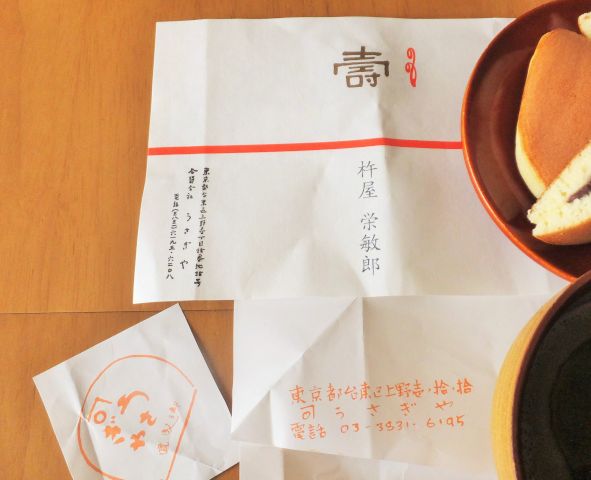 壽
杵屋 栄敏郎
東京都台東区上野壱丁目拾番地拾号
合資会社 うさぎや
電話(八三一)六一九五・六二〇八
東京都台東区上野壱・拾・拾
司 うさぎや
電話 03-3831-6195
うさぎや